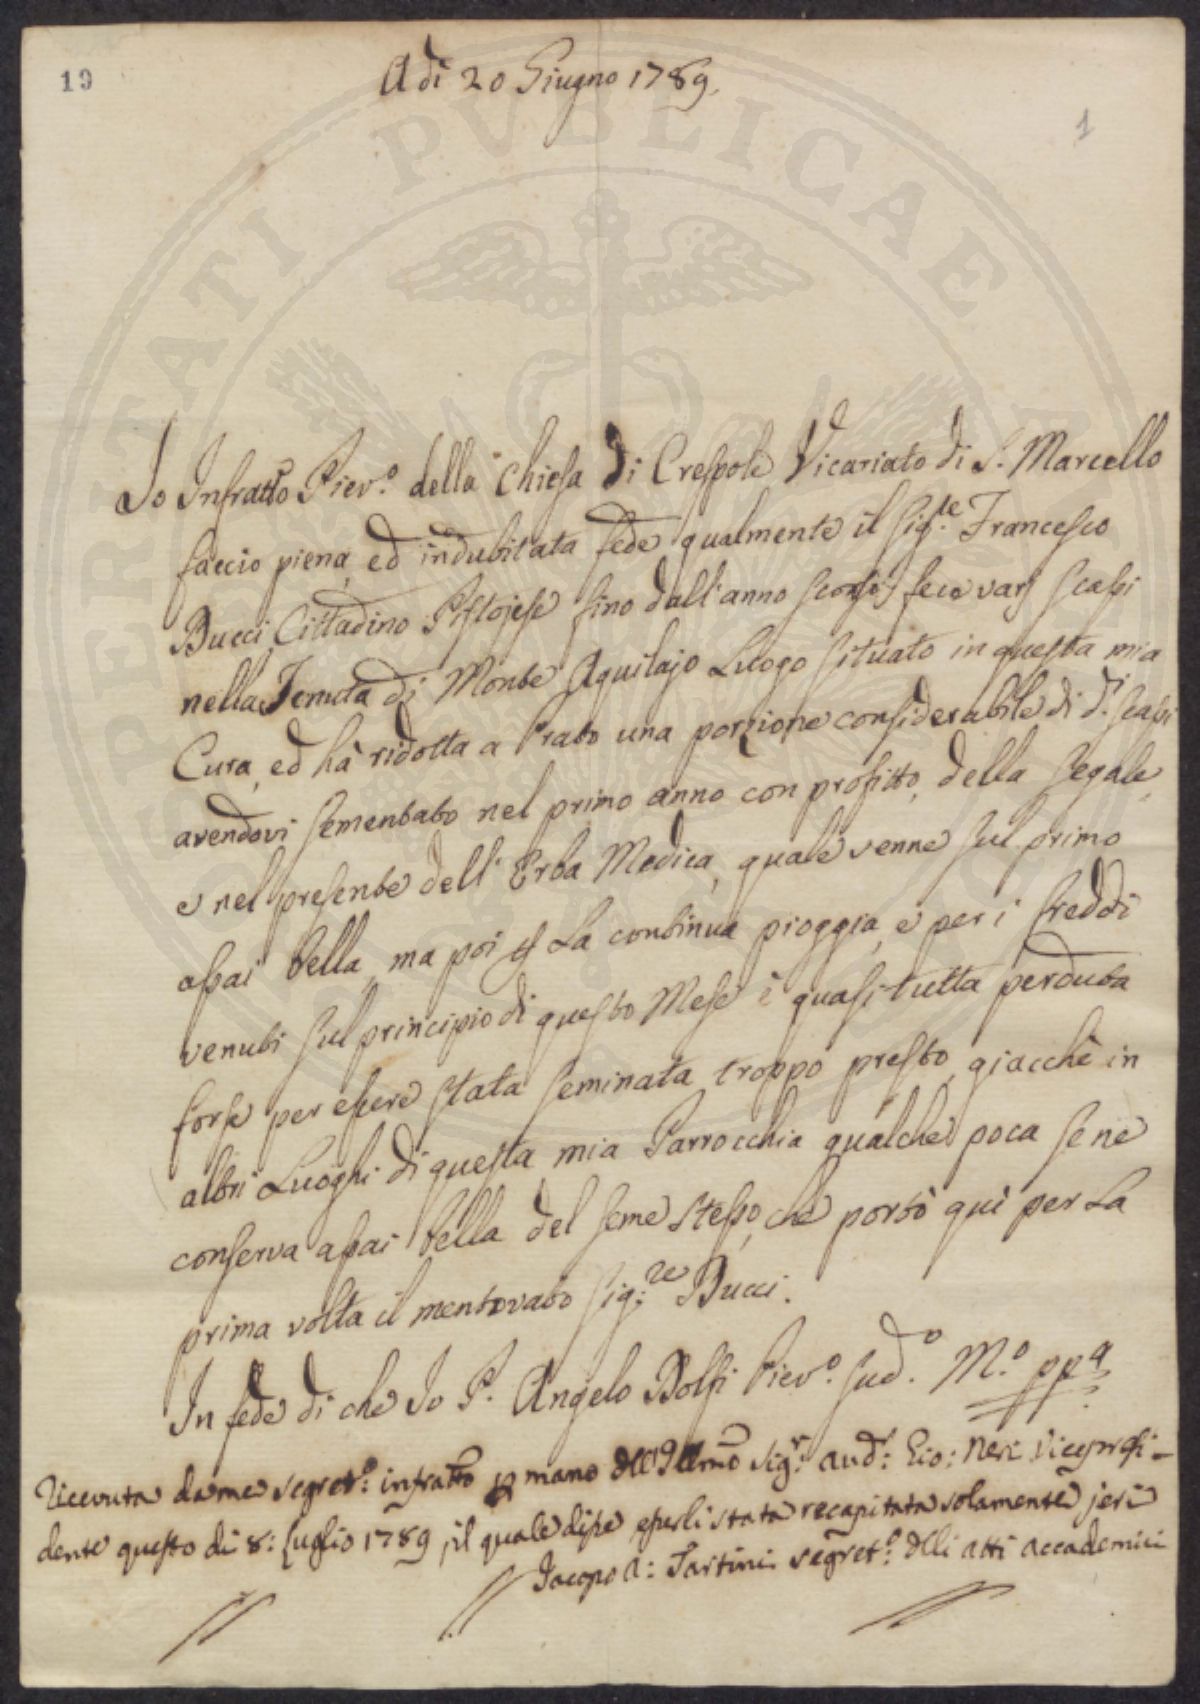 19
A dì 20 Giugno 1789.
1
Io Infratto Piev.º della Chiesa di Crespole Vicariato di S. Marcello
faccio piena, ed indubitata fede qualmente il Sig.re Francesco
Bucci Cittadino Pistojese fino dall'anno scorso fece varj scassi
nella Tenuta di Monte Aquilajo Luogo situato in questa mia
Cura, ed hà ridotta a Prato una porzione considerabile di d.i scassi
avendovi sementato nel primo anno con profitto, della segale,
e nel presente dell'Erba Medica, quale venne sul primo
assai bella, ma poi p La continua pioggia, e per i freddi
venuti sul principio di questo Mese è quasi tutta perduta
forse per essere stata seminata troppo presto, giacchè in
altri Luoghi di questa mia Parrocchia qualche poca se ne
conserva assai bella del seme stesso, che portò quì per La
prima volta il mentovato Sig.re Bucci.
In fede di che Io P. Angelo Bolsi Piev.º sud.º M.º pp.a
Ricevuta da me segret.º infratto p mano dell'Illmo Sig.r Aud.r Gio: Neri Vicepresi-
dente questo dì 8: Luglio 1789, il quale disse esserli stata recapitata solamente jeri
Jacopo A: Tartini segret.º delli atti accademici
PERITATI PVBLICAE